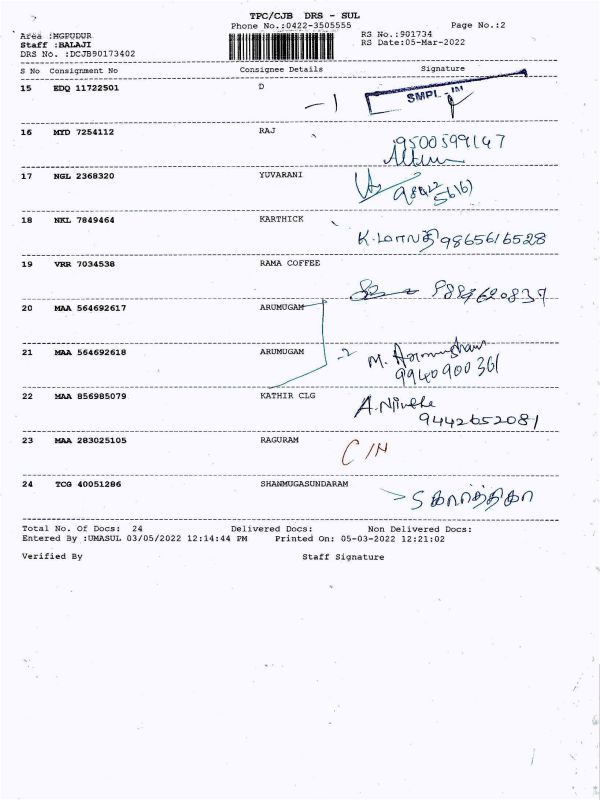 TPC/CJB DRS - SUL
Phone No.:0422-3505555 Page No.:2
Area :MGPUDUR RS No.:901734
Staff :BALAJI RS Date:05-Mar-2022
DRS No. :DCJB90173402
S No Consignment No Consignee Details Signature
15 EDQ 11722501 D
- 1 SMPL - IM
16 MYD 7254112 RAJ
9500599147
17 NGL 2368320 YUVARANI
18 NKL 7849464 KARTHICK
K. மாலதி 9865616528
19 VRR 7034538 RAMA COFFEE
9889620837
20 MAA 564692617 ARUMUGAM
21 MAA 564692618 ARUMUGAM
-2 M. Arumugham
9940900361
22 MAA 856985079 KATHIR CLG
A.
9442652081
23 MAA 283025105 RAGURAM
C/N
24 TCG 40051286 SHANMUGASUNDARAM
S கார்த்திகா
Total No. Of Docs: 24 Delivered Docs: Non Delivered Docs:
Entered By :UMASUL 03/05/2022 12:14:44 PM Printed On: 05-03-2022 12:21:02
Verified By Staff Signature